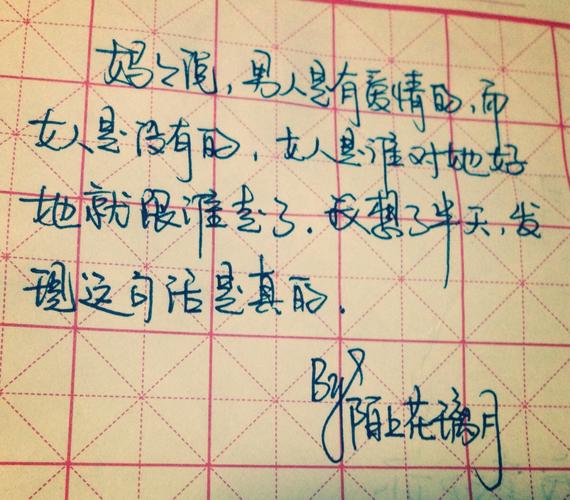 妈妈说，男人是有爱情的，而
女人是没有的，女人是谁对她好
她就跟谁走了。我想了半天，发
现这句话是真的。
By 陌上花璃月